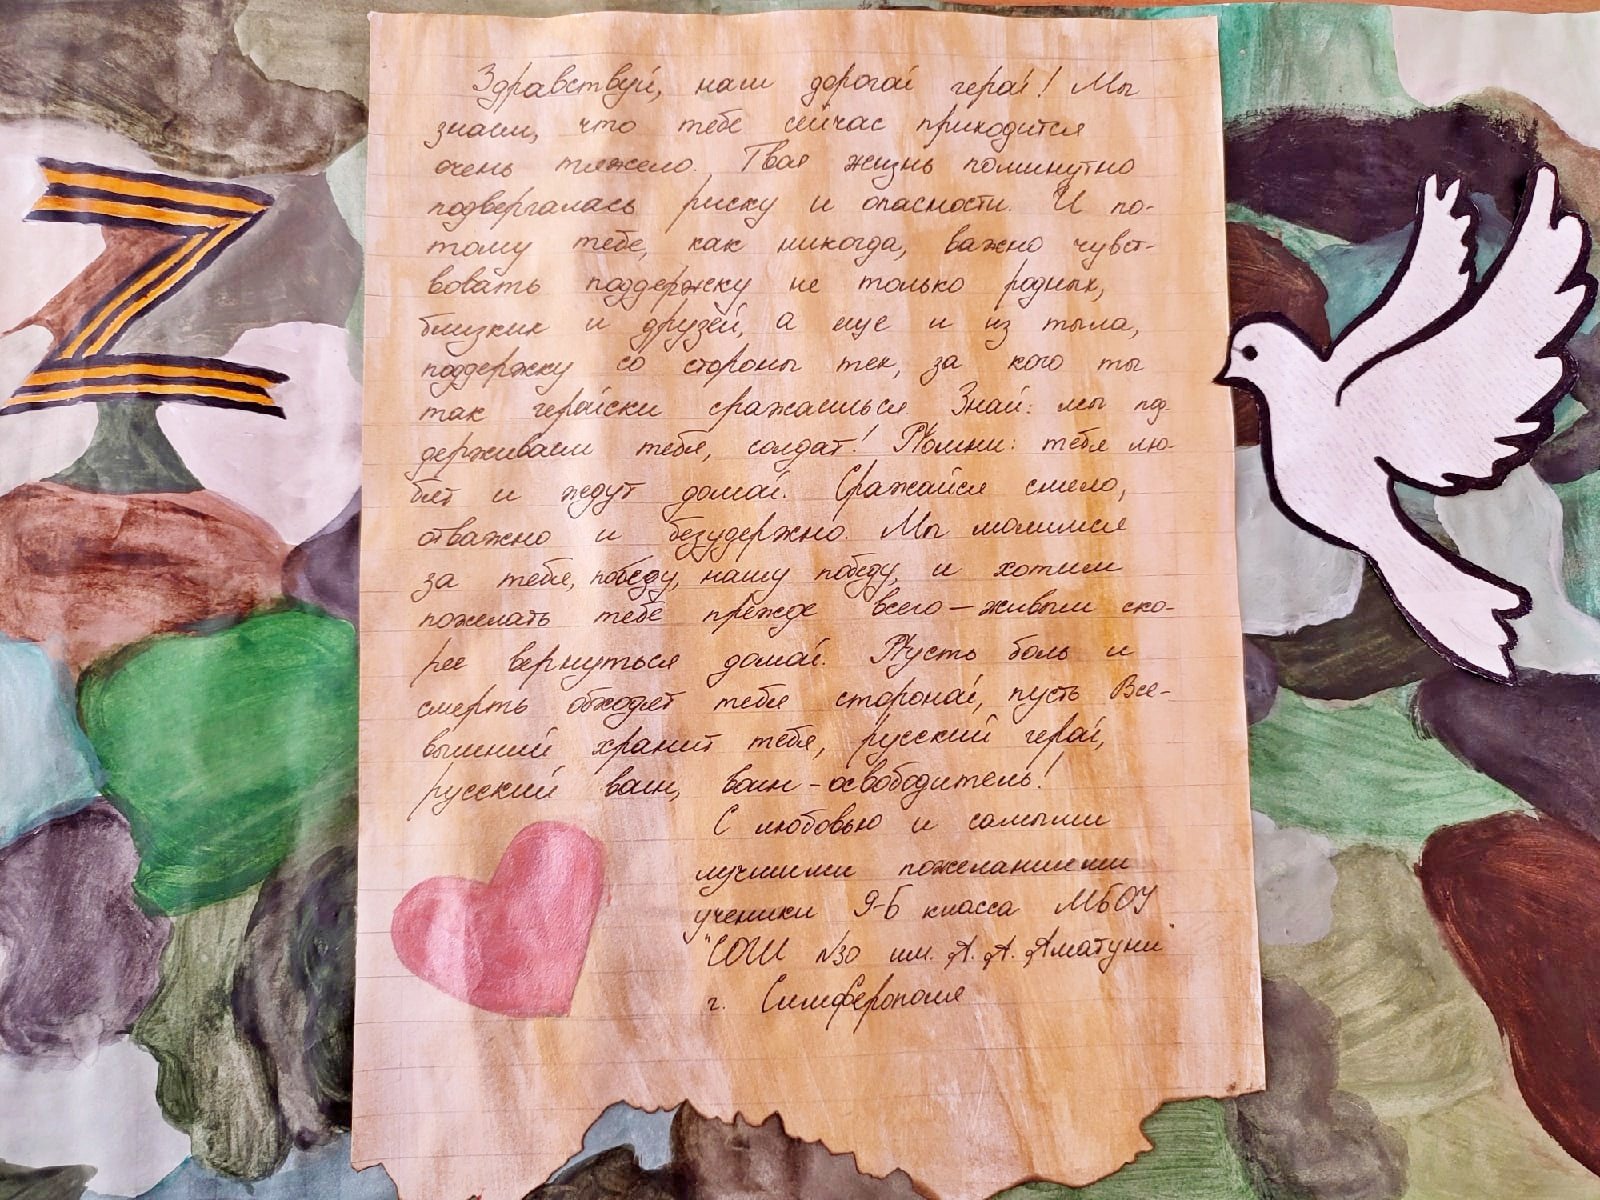 Здравствуй, наш дорогой герой! Мы
знаем, что тебе сейчас приходится
очень тяжело. Твоя жизнь поминутно
подвергалась риску и опасности. И по-
тому тебе, как никогда, важно чувст-
вовать поддержку не только родных,
близких и друзей, а еще и из тыла,
поддержку со стороны тех, за кого ты
так геройски сражаешься. Знай: мы под-
держиваем тебя, солдат! Помни: тебя лю-
бят и ждут домой. Сражайся смело,
отважно и безудержно. Мы молимся
за тебя, победу, нашу победу, и хотим
пожелать тебе прежде всего – живым ско-
рее вернуться домой. Пусть боль и
смерть обходят тебя стороной, пусть Все-
вышний хранит тебя, русский герой,
русский воин, воин-освободитель!
С любовью и самыми
лучшими пожеланиями
ученики 9-Б класса МБОУ
"СОШ №30 им. А. А. Аматуни"
г. Симферополя